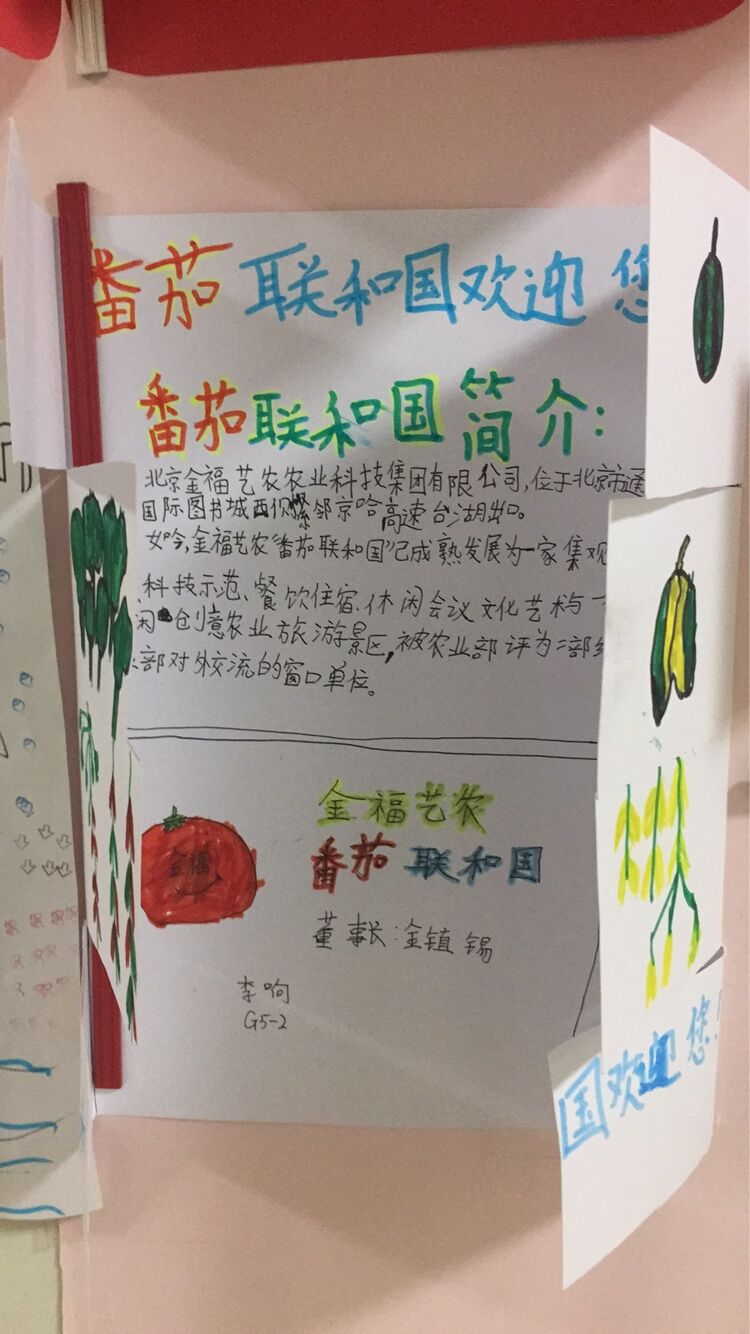 番茄联和国欢迎您
番茄联和国简介:
北京金福艺农农业科技集团有限公司,位于北京市通
国际图书城西侧紧邻京哈高速台湖出口。
如今,金福艺农“番茄联和国”已成熟发展为一家集观
科技示范、餐饮住宿、休闲会议文化艺术与
闲创意农业旅游景区,被农业部评为二部
部对外交流的窗口单位。
金福艺农
番茄联和国
金福
董事长:金镇锡
李响
G5-2
国欢迎您!